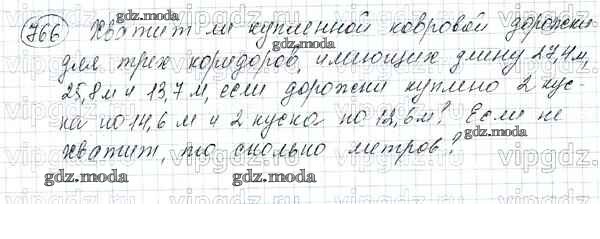 766 Хватит ли купленной ковровой дорожки
для трех коридоров, имеющих длину 27,4м,
25,8м и 13,7м, если дорожки куплено 2 кус-
ка по 14,6 м и 2 куска по 12,6м? Если не
хватит, то сколько метров?
gdz.moda
gdz.moda
gdz.moda
gdz.moda
gdz.moda
gdz.moda
gdz.moda
vipgdz.